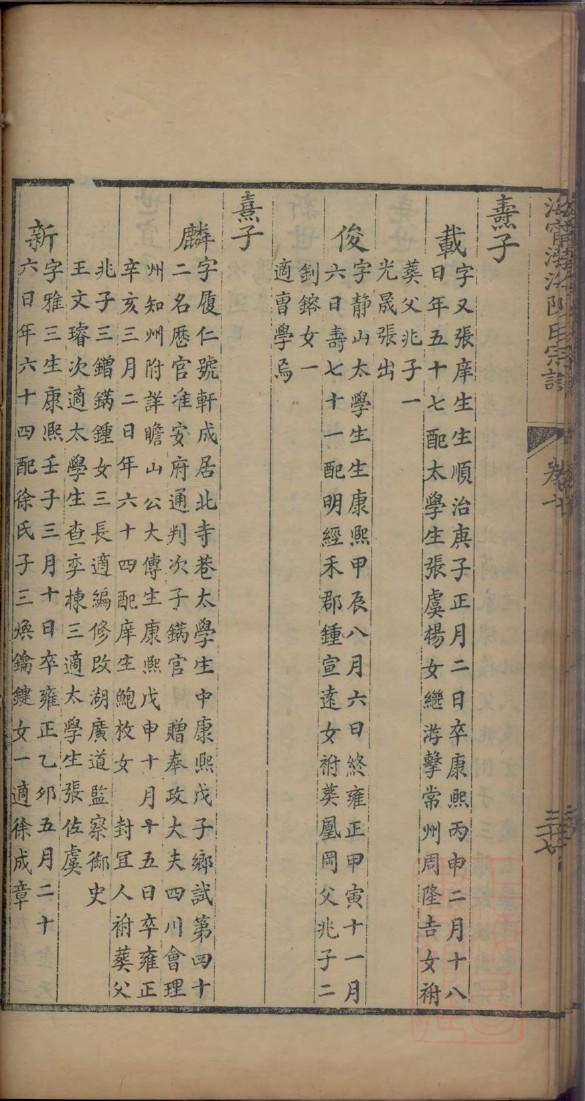 海寧渤海陳氏宗譜
卷十
三十七
燾子
載
字又張庠生生順治庚子正月二日卒康熙丙申二月十八
日年五十七配太學生張虞楊女繼游擊常州周隆吉女祔
葬父兆子一
光晟張出
俊
字靜山太學生生康熙甲辰八月六日終雍正甲寅十一月
六日壽七十一配明經禾郡鍾宣遠女祔葬凰岡父兆子二
釗鎔女一
適曹學烏
熹子
麟
字履仁號軒成居北寺巷太學生中康熙戊子鄉試第四十
二名歷官准安府通判次子鏋官 贈奉政大夫四川會理
州知州附詳瞻山公大傳生康熙戊申十月十五日卒雍正
辛亥三月二日年六十四配庠生鮑枚女 封宜人祔葬父
兆子三鐕鏋鍾女三長適編修改湖廣道監察御史
王文璿次適太學生查奕棟三適太學生張佐虞
新
字雅三生康熙壬子三月十日卒雍正乙卯五月二十
六日年六十四配徐氏子三煥鑰鍵女一適徐成章